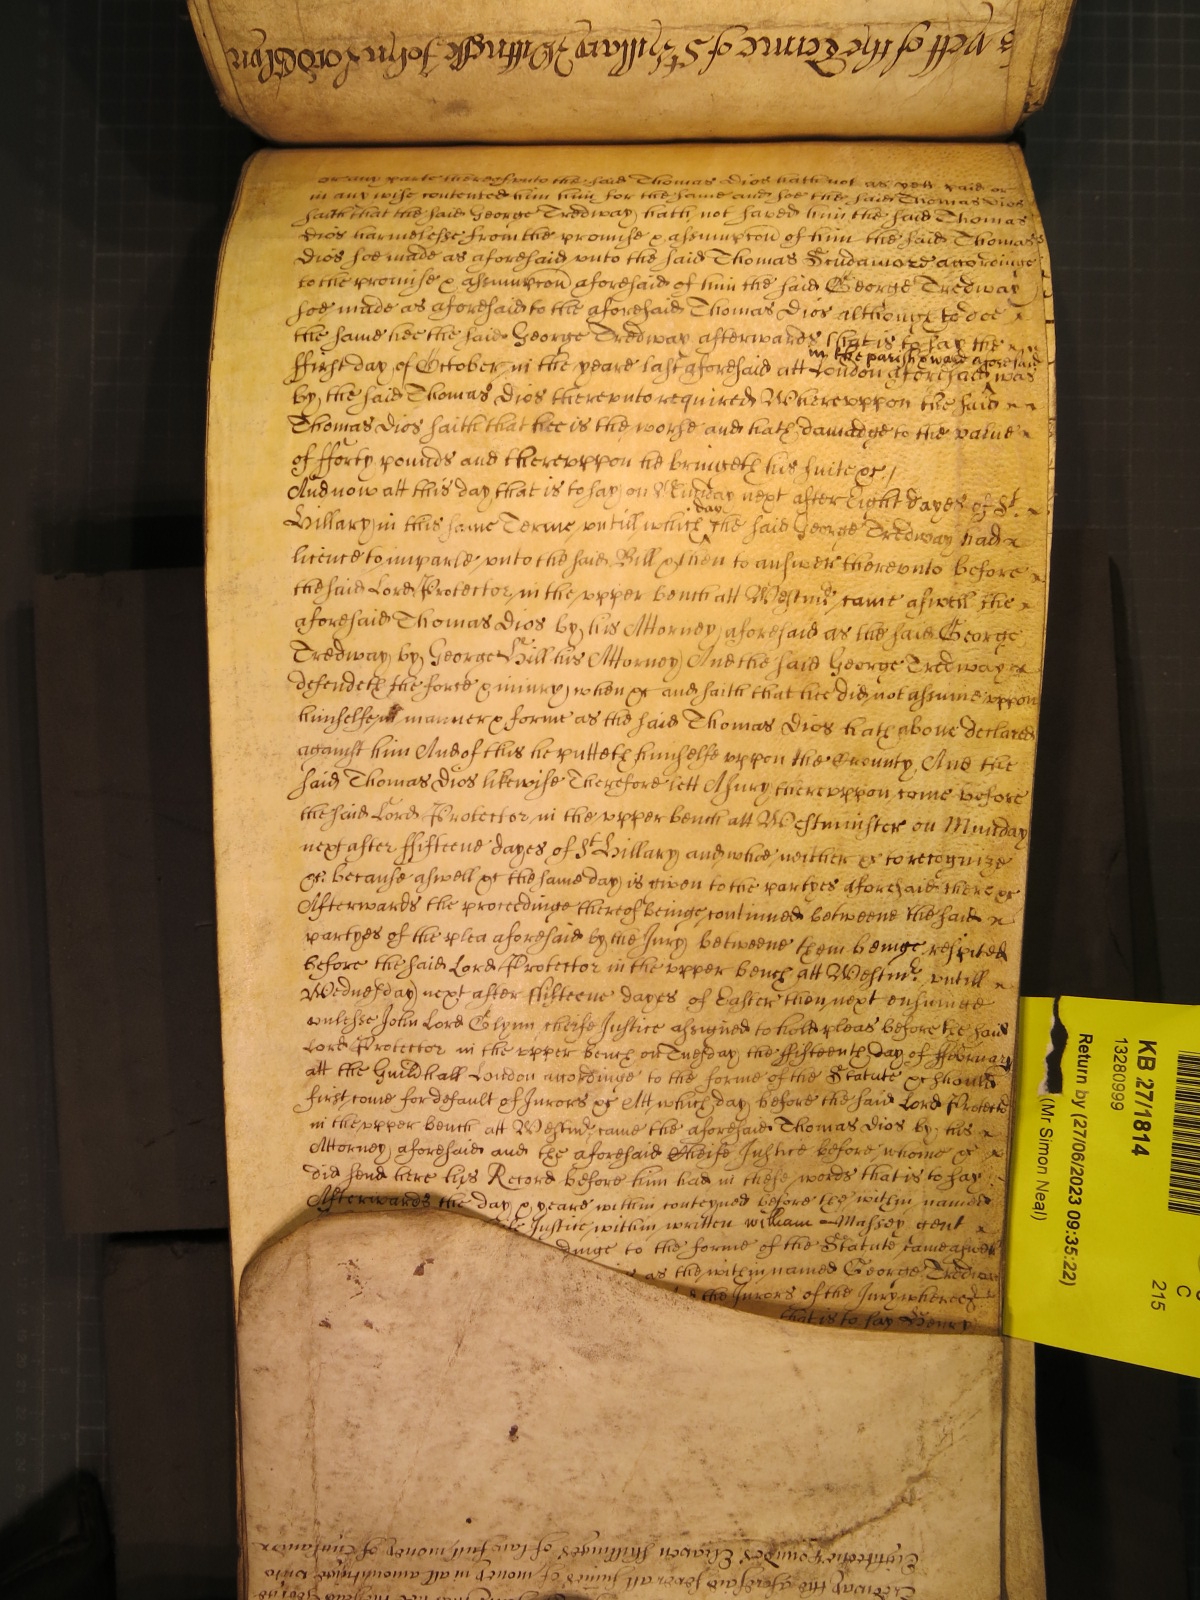 yett of the Terme of St Hillary Wittnesse John Lord Glyn
or any parte thereof unto the said Thomas Dios hath not as yett paid or
in any wise contented him for the same and soe the said Thomas Dios
saith that the said George Tredway hath not saved him the said Thomas
Dios harmelesse from the promise & assumpcon of him the said Thomas
Dios soe made as aforesaid unto the said Thomas Scudamore accordinge
to the promise & assumpcon aforesaid of him the said George Tredway
soe made as aforesaid to the aforesaid Thomas Dios although to doe
the same hee the said George Tredway afterwards that is to say the
in the parish & ward aforesaid
ffirst day of October in the yeare last aforesaid att London aforesaid was
by the said Thomas Dios thereunto required Whereuppon the said
Thomas Dios saith that hee is the worse and hath damadge to the value
of fforty pounds and thereuppon he bringeth his suite &c
And now att this day that is to say on Munday next after Eight dayes of St
day
Hillary in this same Terme untill which the said George Tredway had
licence to imparle unto the said Bill & then to answer thereunto before
the said Lord Protector in the upper bench att Westmr came aswell the
aforesaid Thomas Dios by his Attorney aforesaid as the said George
Tredway by George Hill his Attorney And the said George Tredway
defendeth the force & iniury when &c and saith that hee did not assume uppon
himselfe in manner & forme as the said Thomas Dios hath above declared
against him And of this he putteth himselfe uppon the Country And the
said Thomas Dios likewise Therefore lett A Jury thereuppon come before
the said Lord Protector in the upper bench att Westminster on Munday
next after ffifteene dayes of St Hillary and who neither &c to recognize
&c because aswell &c the same day is given to the partyes aforesaid there &c
Afterwards the proceedinge thereof beinge continued betweene the said
partyes of the plea aforesaid by the Jury betweene them beinge respited
before the said Lord Protector in the upper bench att Westmr untill
Wednesday next after ffifteene dayes of Easter then next ensuinge
unlesse John Lord Glynn cheife Justice assigned to hold pleas before the said
Lord Protector in the upper bench on Tuesday the ffifteenth day of ffebruary
att the Guildhall London accordinge to the forme of the Statute &c should
first come for default of Jurors &c Att which day before the said Lord Protector
in the upper bench att Westmr came the aforesaid Thomas Dios by his
Attorney aforesaid and the aforesaid Cheife Justice before whome &c
did send here his Record before him had in these words that is to say
Afterwards the day & yeare within conteyned before the within named
Justice within written William Massey gent
dinge to the forme of the Statute came aswell
as the within named George Tredway
the Jurors of the Jury whereof
that is to say Henry
KB 27/1814
13280999
Return by (27/06/2023 09:35:22)
(Mr Simon Neal)
C
215
Eighteene Pounds Eleaven shillinges of lawfull money of England
Tredway the aforesaid severall summes of money in all amountinge unto